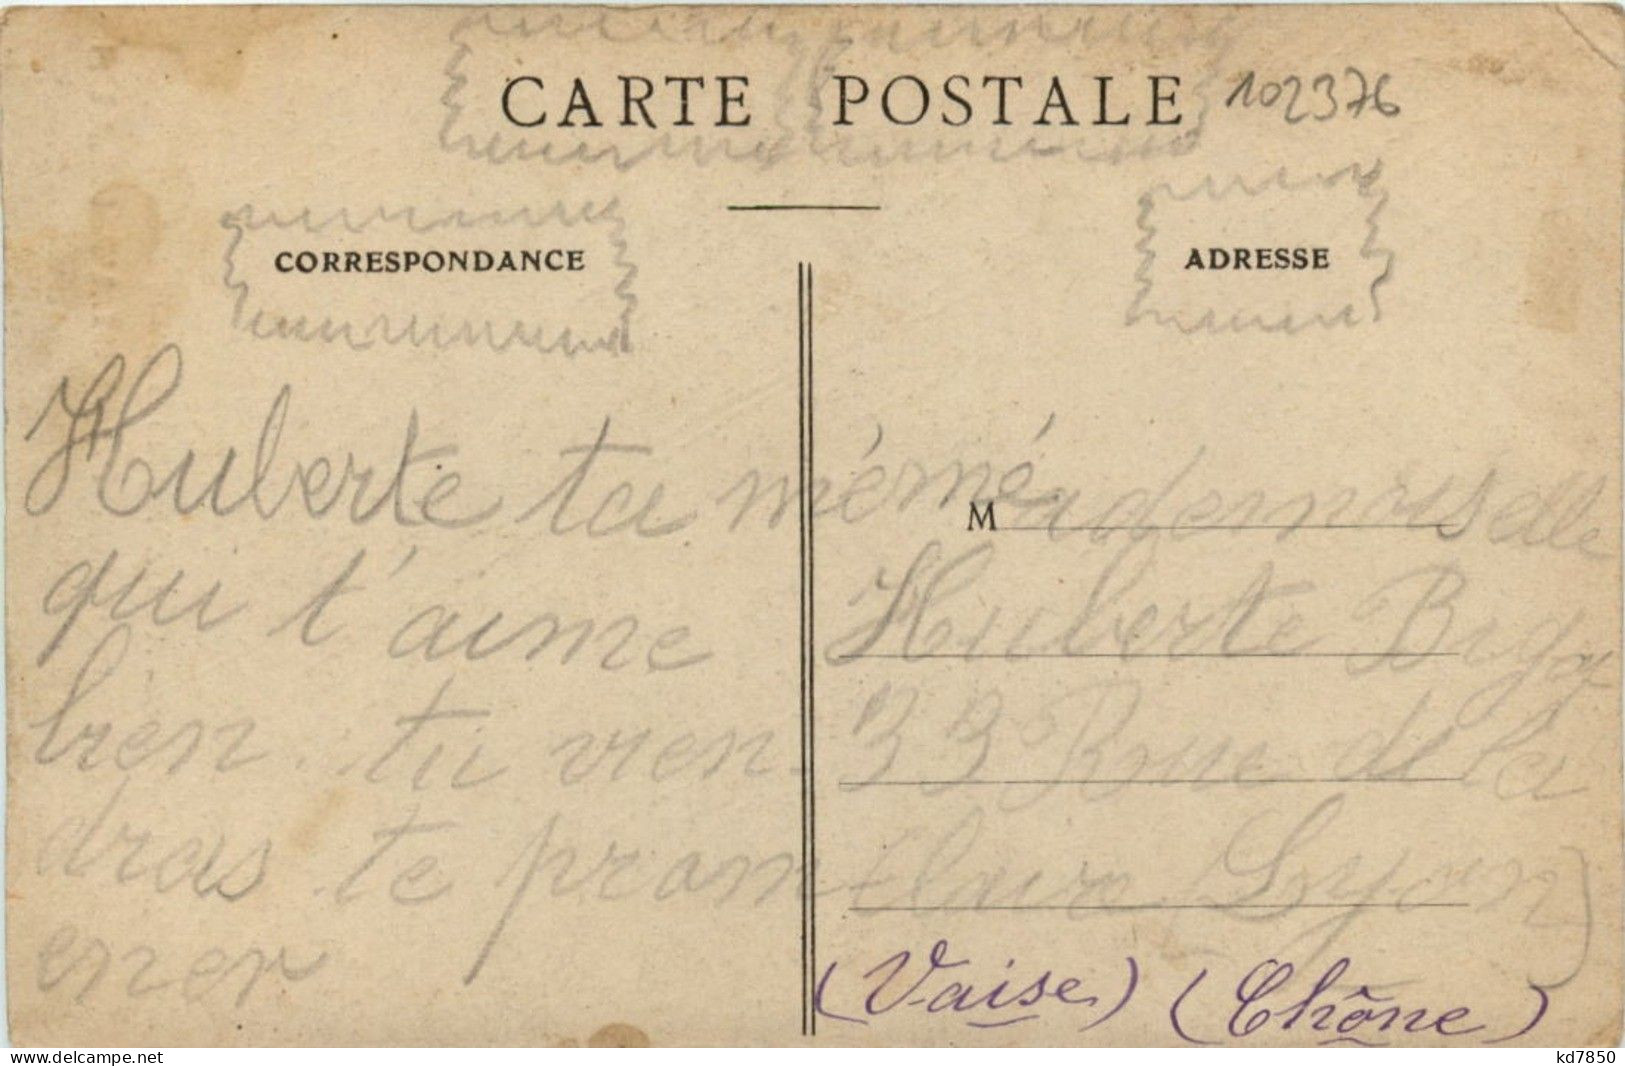 CARTE POSTALE
102376
CORRESPONDANCE
Huberte ta mémé
qui t'aime
bien. tu vien-
dras te prom-
ener
ADRESSE
Mademoiselle
Huberte
33 Rue de la
Claire (Lyon)
(Vaise) (Rhône)
www.delcampe.net
kd7850